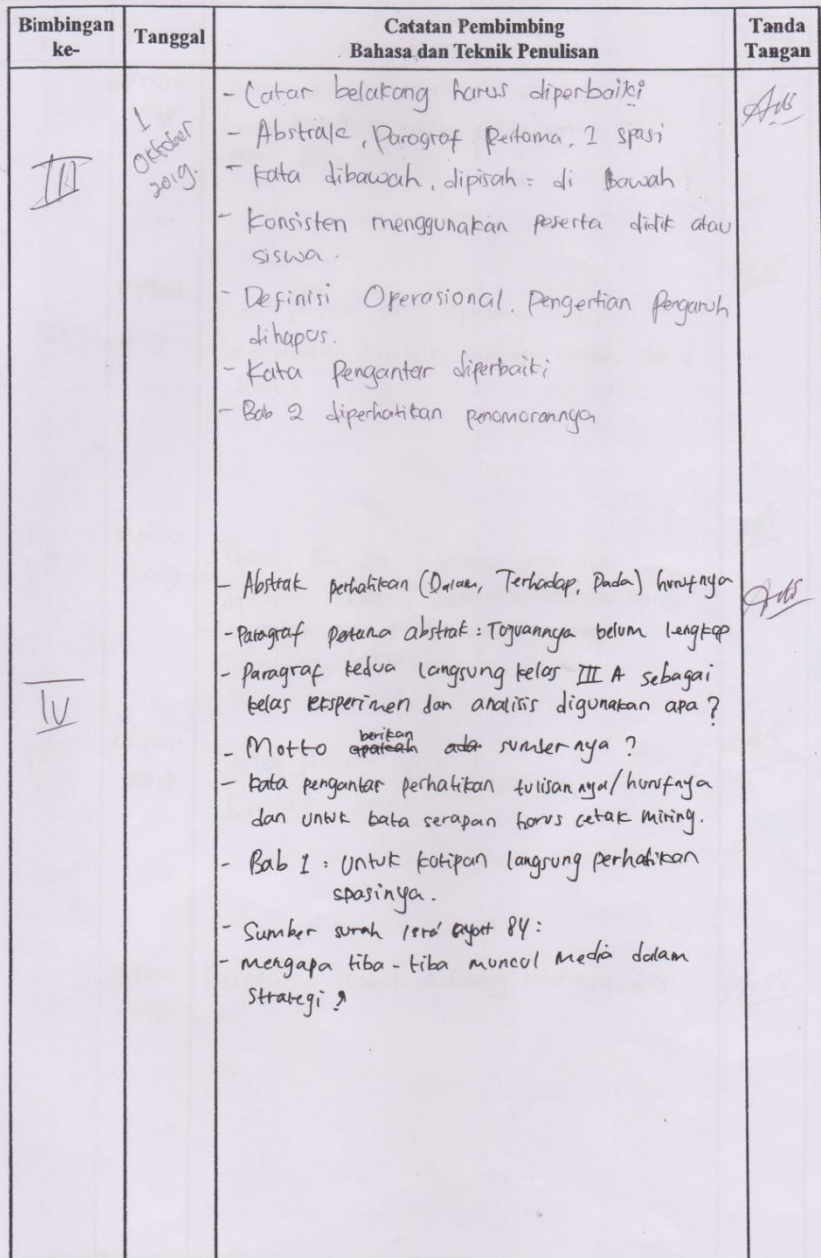 Bimbingan ke-
Tanggal
Catatan Pembimbing
Bahasa dan Teknik Penulisan
Tanda Tangan
III
1 Oktober 2019.
- Latar belakang harus diperbaiki
- Abstrak, Paragraf Pertama, 1 spasi
- kata dibawah, dipisah = di bawah
- Konsisten menggunakan peserta didik atau
siswa.
- Definisi Operasional, Pengertian Pengaruh
dihapus.
- Kata Pengantar diperbaiki
- Bab 2 diperhatikan penomorannya
IV
- Abstrak perhatikan (Dalam, Terhadap, Pada) hurufnya
- Paragraf pertama abstrak : Tujuannya belum lengkap
- Paragraf kedua langsung kelas III A sebagai
kelas eksperimen dan analisis digunakan apa ?
- Motto apakah berikan ada sumbernya ?
- kata pengantar perhatikan tulisannya/hurufnya
dan untuk kata serapan harus cetak miring.
- Bab 1 : Untuk kutipan langsung perhatikan
spasinya.
- Sumber surah Isra' ayat 84 :
- mengapa tiba-tiba muncul Media dalam
Strategi ?